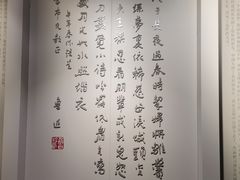 于長夜過春時挈婦將雛鬢
絲夢裏依稀慈母淚城頭變
大王旗忍看朋輩成新鬼怒
刀叢覓小詩吟罷低眉無寫
月光如水照緇衣
年春作錄呈
市教正
魯迅